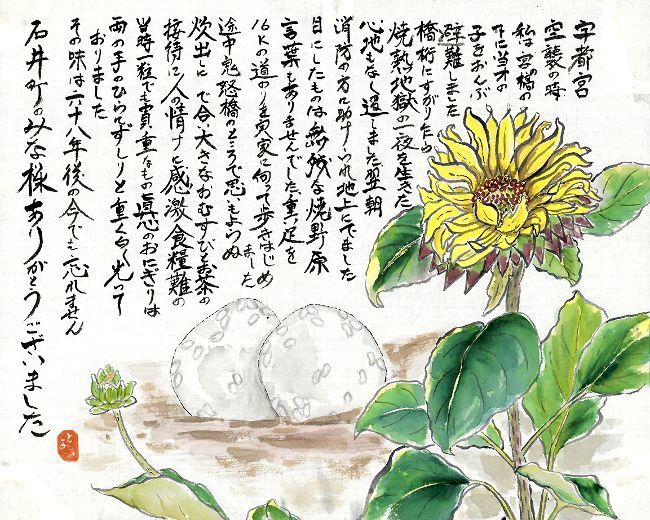 宇都宮
空襲の時
私は宮橋の
下に当才の
子をおんぶ
避難しました
橋桁にすがりたら
焼熱地獄の一夜を生きた
心地もなく過しました翌朝
消防の方に助けられ地上にでました
目にしたものは無残な焼野原
言葉もありませんでした、重い足を
16Kの道のり真実に向って歩きはじめ
ました
途中鬼怒橋のところで思いもつかぬ
炊出しにで合い大きなおむすびとお茶の
接待に人の情けに感激食糧難の
当時一粒でも貴重なもの真心のおにぎりは
両の手のひらにずしりと重く白く光って
おりました
その味は六十八年後の今でも忘れません
石井町のみな様ありがとうございました